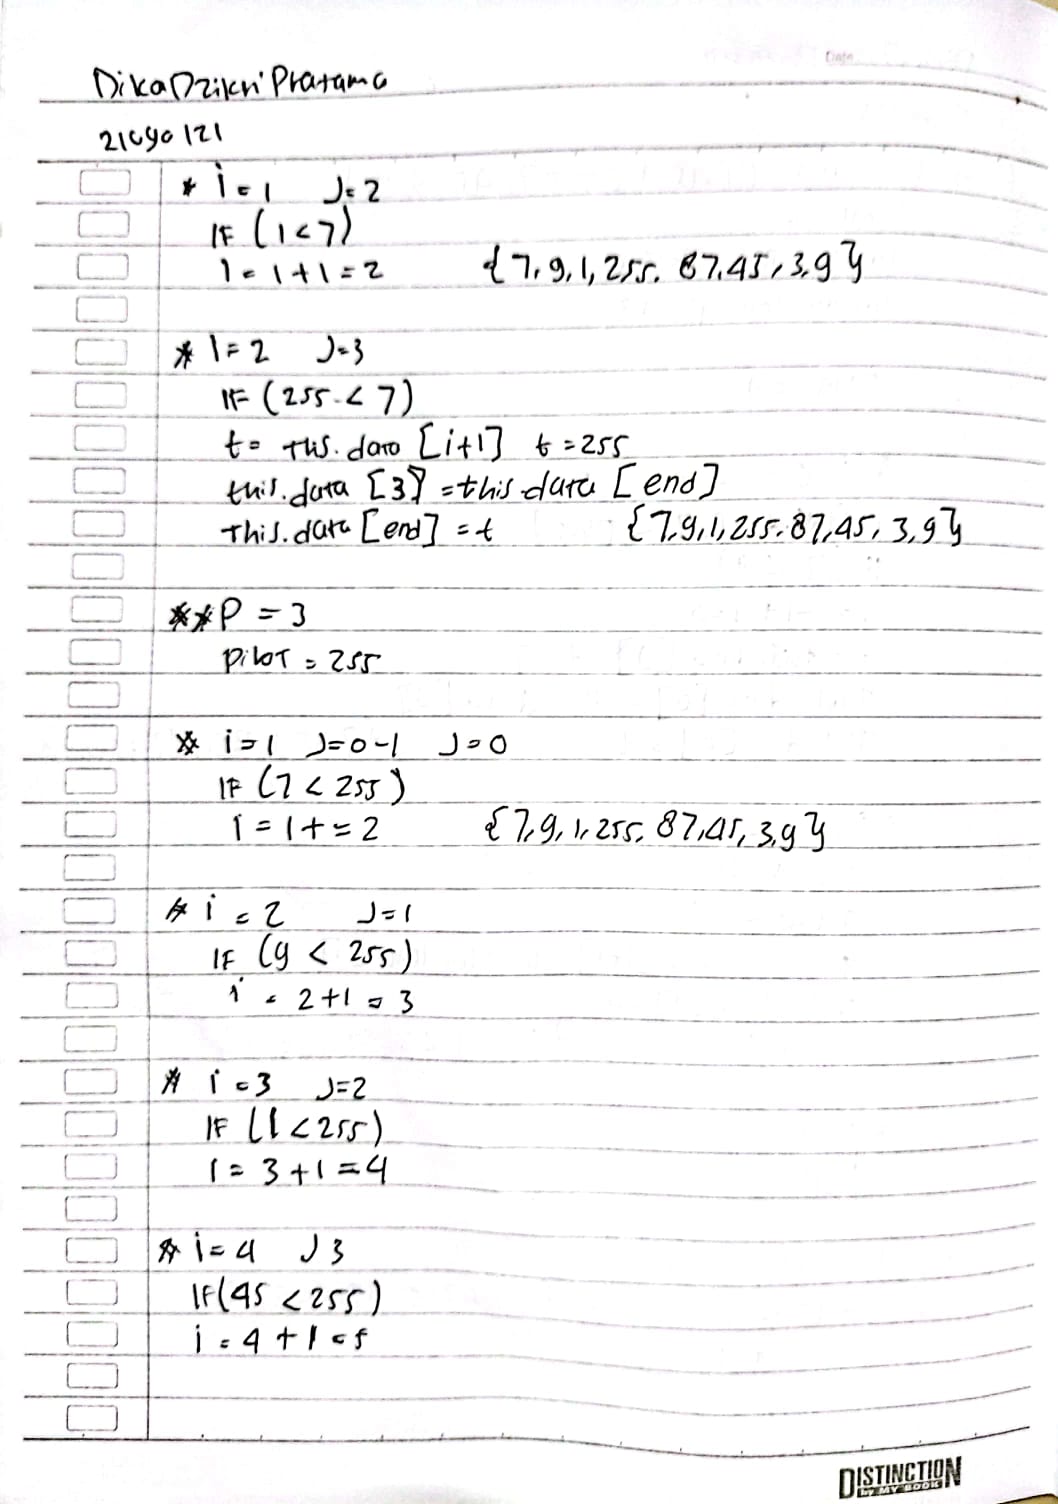 Date
Dika Dzikri Pratama
* i = 1 J = 2
IF (1 < 7)
1 = 1 + 1 = 2 {7, 9, 1, 255, 87, 45, 3, 9}
* 1 = 2 J = 3
IF (255 < 7)
t = this. data [i+1] t = 255
this. data [3] = this data [end]
This. data [end] = t {7, 9, 1, 255, 87, 45, 3, 9}
** P = 3
Pilot = 255
* i = 1 J = 0 - 1 J = 0
IF (7 < 255)
i = 1 + = 2 {7, 9, 1, 255, 87, 45, 3, 9}
* i = 2 J = 1
IF (9 < 255)
i = 2 + 1 = 3
* i = 3 J = 2
IF (1 < 255)
1 = 3 + 1 = 4
* i = 4 J 3
IF (45 < 255)
i = 4 + 1 = 5
DISTINCTION
by MY BOOK